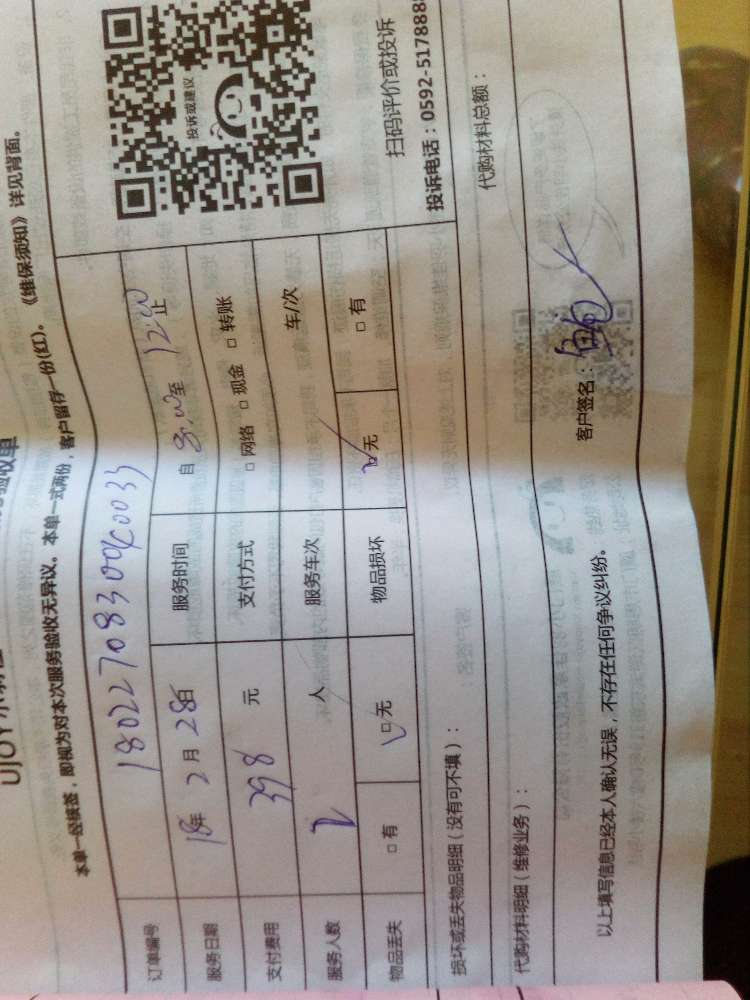 验收单
本单一经核签，即视为对本次服务验收无异议。本单一式两份，客户留存一份(红)。《维保须知》详见背面。
订单编号
服务日期 18年 2月 28日 服务时间 自 8:00 至 12:00 止
支付费用 398 元 支付方式 □ 网络 □ 现金 □ 转账
服务人数 2 人 服务车次 车/次
物品丢失 □ 有 □ 无 物品损坏 □ 无 □ 有
投诉或建议
扫码评价或投诉
投诉电话：0592-517888
损坏或丢失物品明细（没有可不填）：
代购材料明细（维修业务）： 代购材料总额：
以上填写信息已经本人确认无误，不存在任何争议纠纷。 客户签名：